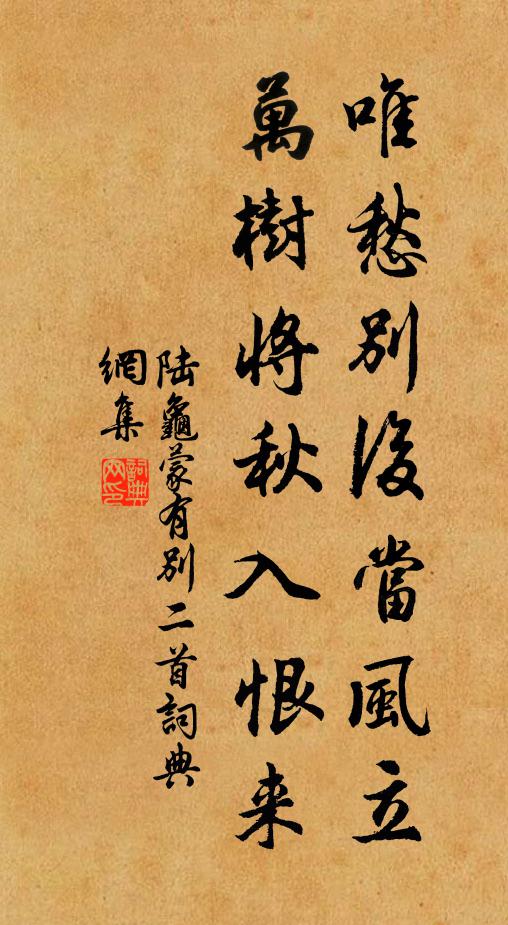 唯愁別後當風立
萬樹將秋入恨来
陆龜蒙有别二首詞典
網集
詞典
网印